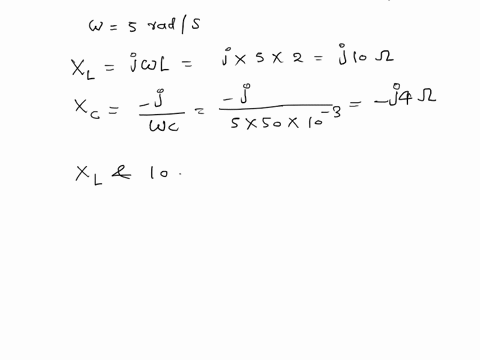 ω = 5 rad/s
X_L = jωL = j × 5 × 2 = j10 Ω
X_C = -j/ωC = -j/(5×50×10^-3) = -j4 Ω
X_L & 10.